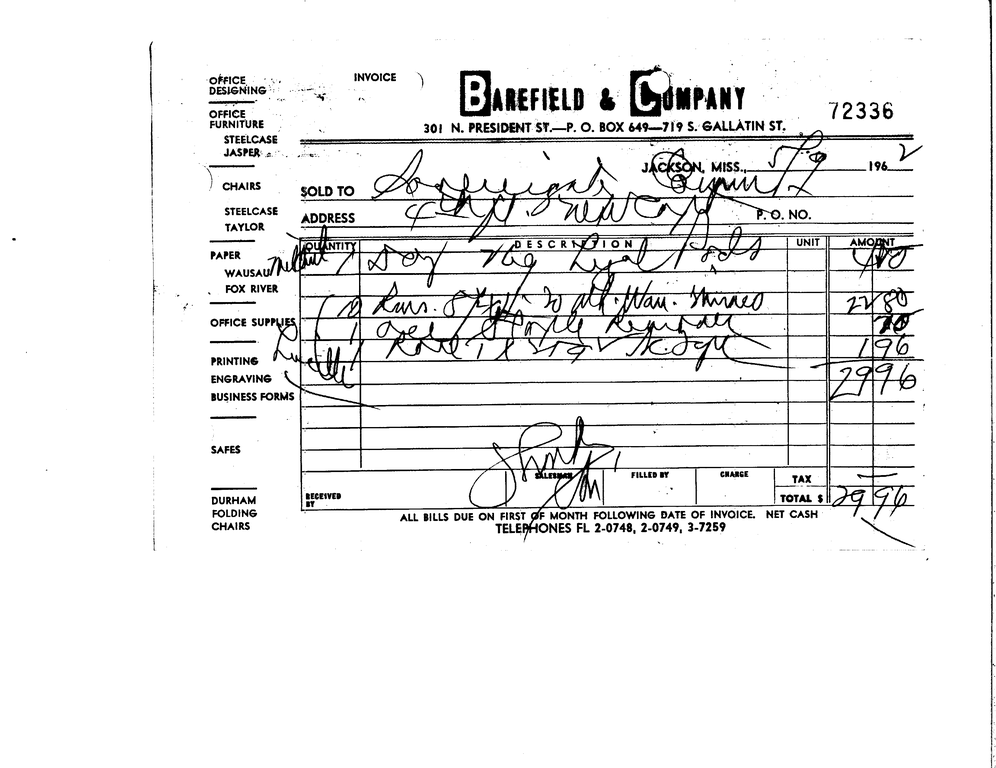 INVOICE
BAREFIELD & COMPANY
72336
301 N. PRESIDENT ST.—P. O. BOX 649—719 S. GALLATIN ST.
OFFICE
DESIGNING
OFFICE
FURNITURE
STEELCASE
JASPER
CHAIRS
STEELCASE
TAYLOR
PAPER
WAUSAU
FOX RIVER
OFFICE SUPPLIES
PRINTING
ENGRAVING
BUSINESS FORMS
SAFES
DURHAM
FOLDING
CHAIRS
JACKSON, MISS., 196 2
SOLD TO Sovereignty Comm
ADDRESS New Cap P. O. NO.
QUANTITY DESCRIPTION UNIT AMOUNT
1 Doz Legal Pads
Wau. Mimeo 22 80
1 Staple Remover
1 1 96
29 96
RECEIVED
BY
SALESMAN FILLED BY CHARGE TAX
TOTAL $ 29 96
Thank
You
ALL BILLS DUE ON FIRST OF MONTH FOLLOWING DATE OF INVOICE. NET CASH
TELEPHONES FL 2-0748, 2-0749, 3-7259